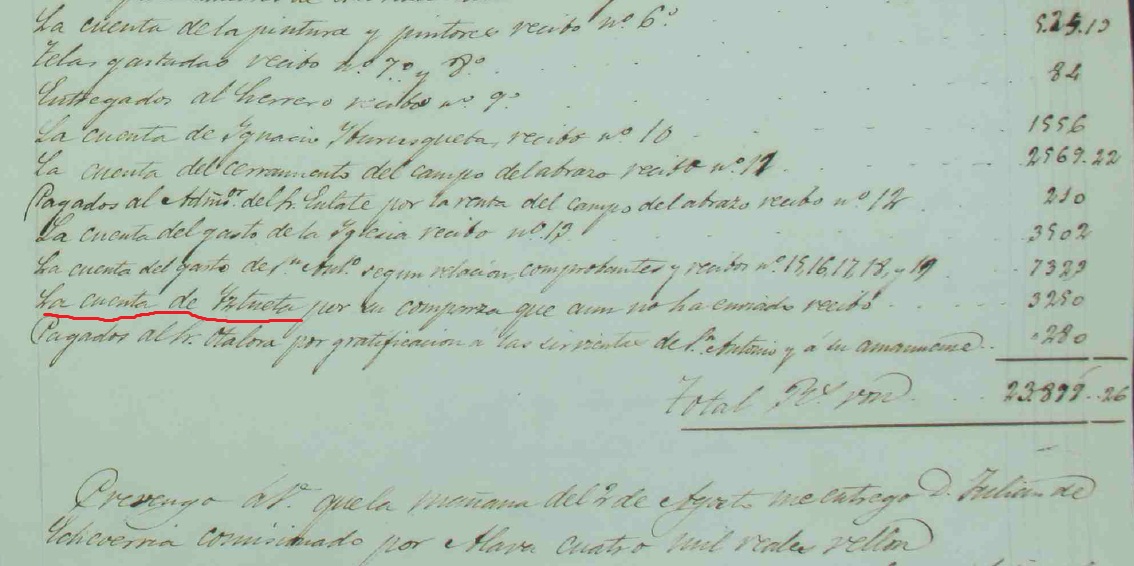 La cuenta de la pintura y pintores recibo nº 6º 525.10
Telas gastadas recibo nº 7º y 8º 84
Entregados al herrero recibo nº 9º
La cuenta de Ignacio recibo nº 10 1556
La cuenta del cerramiento del campo del abrazo recibo nº 11 2569.22
Pagados al Admor. del Sr. Eulate por la renta del campo del abrazo recibo nº 12 210
La cuenta del gasto de la Iglesia recibo nº 13 3502
La cuenta del gasto de Sn. Anto. segun relacion, comprobantes y recibos nº 15, 16, 17, 18, y 19 7323
La cuenta de Iztueta por su comparza que aun no ha enviado recibo 3250
Pagados al Sr. Otalora por gratificacion a las sirvientas de Sn. Antonio y á su amanuense 280
Total Rs. von 23.899..26
Prevengo á V. que la mañana del 2 de Agosto me entregó D. Julian de
Echeverria comisionado por Alava cuatro mil reales vellon